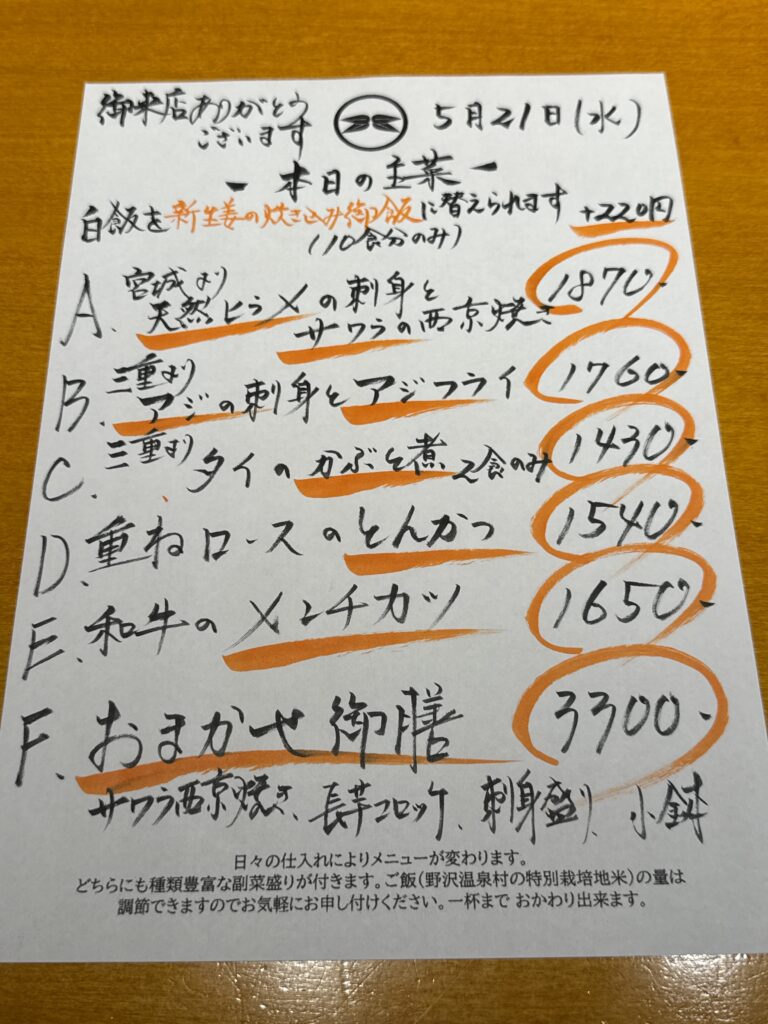 御来店ありがとう
ございます
5月21日(水)
- 本日の主菜 -
白飯を新生姜の炊き込み御飯に替えられます +220円
(10食分のみ)
A. 宮城より
天然ヒラメの刺身と
サワラの西京焼き 1870-
B. 三重より
アジの刺身とアジフライ 1760-
C. 三重より
タイのかぶと煮 2食のみ 1430-
D. 重ねロースのとんかつ 1540-
E. 和牛のメンチカツ 1650-
F. おまかせ御膳 3300-
サワラ西京焼き、長芋コロッケ、刺身盛り、小鉢
日々の仕入れによりメニューが変わります。
どちらにも種類豊富な副菜盛りが付きます。ご飯(野沢温泉村の特別栽培地米)の量は
調節できますのでお気軽にお申し付けください。一杯まで おかわり出来ます。